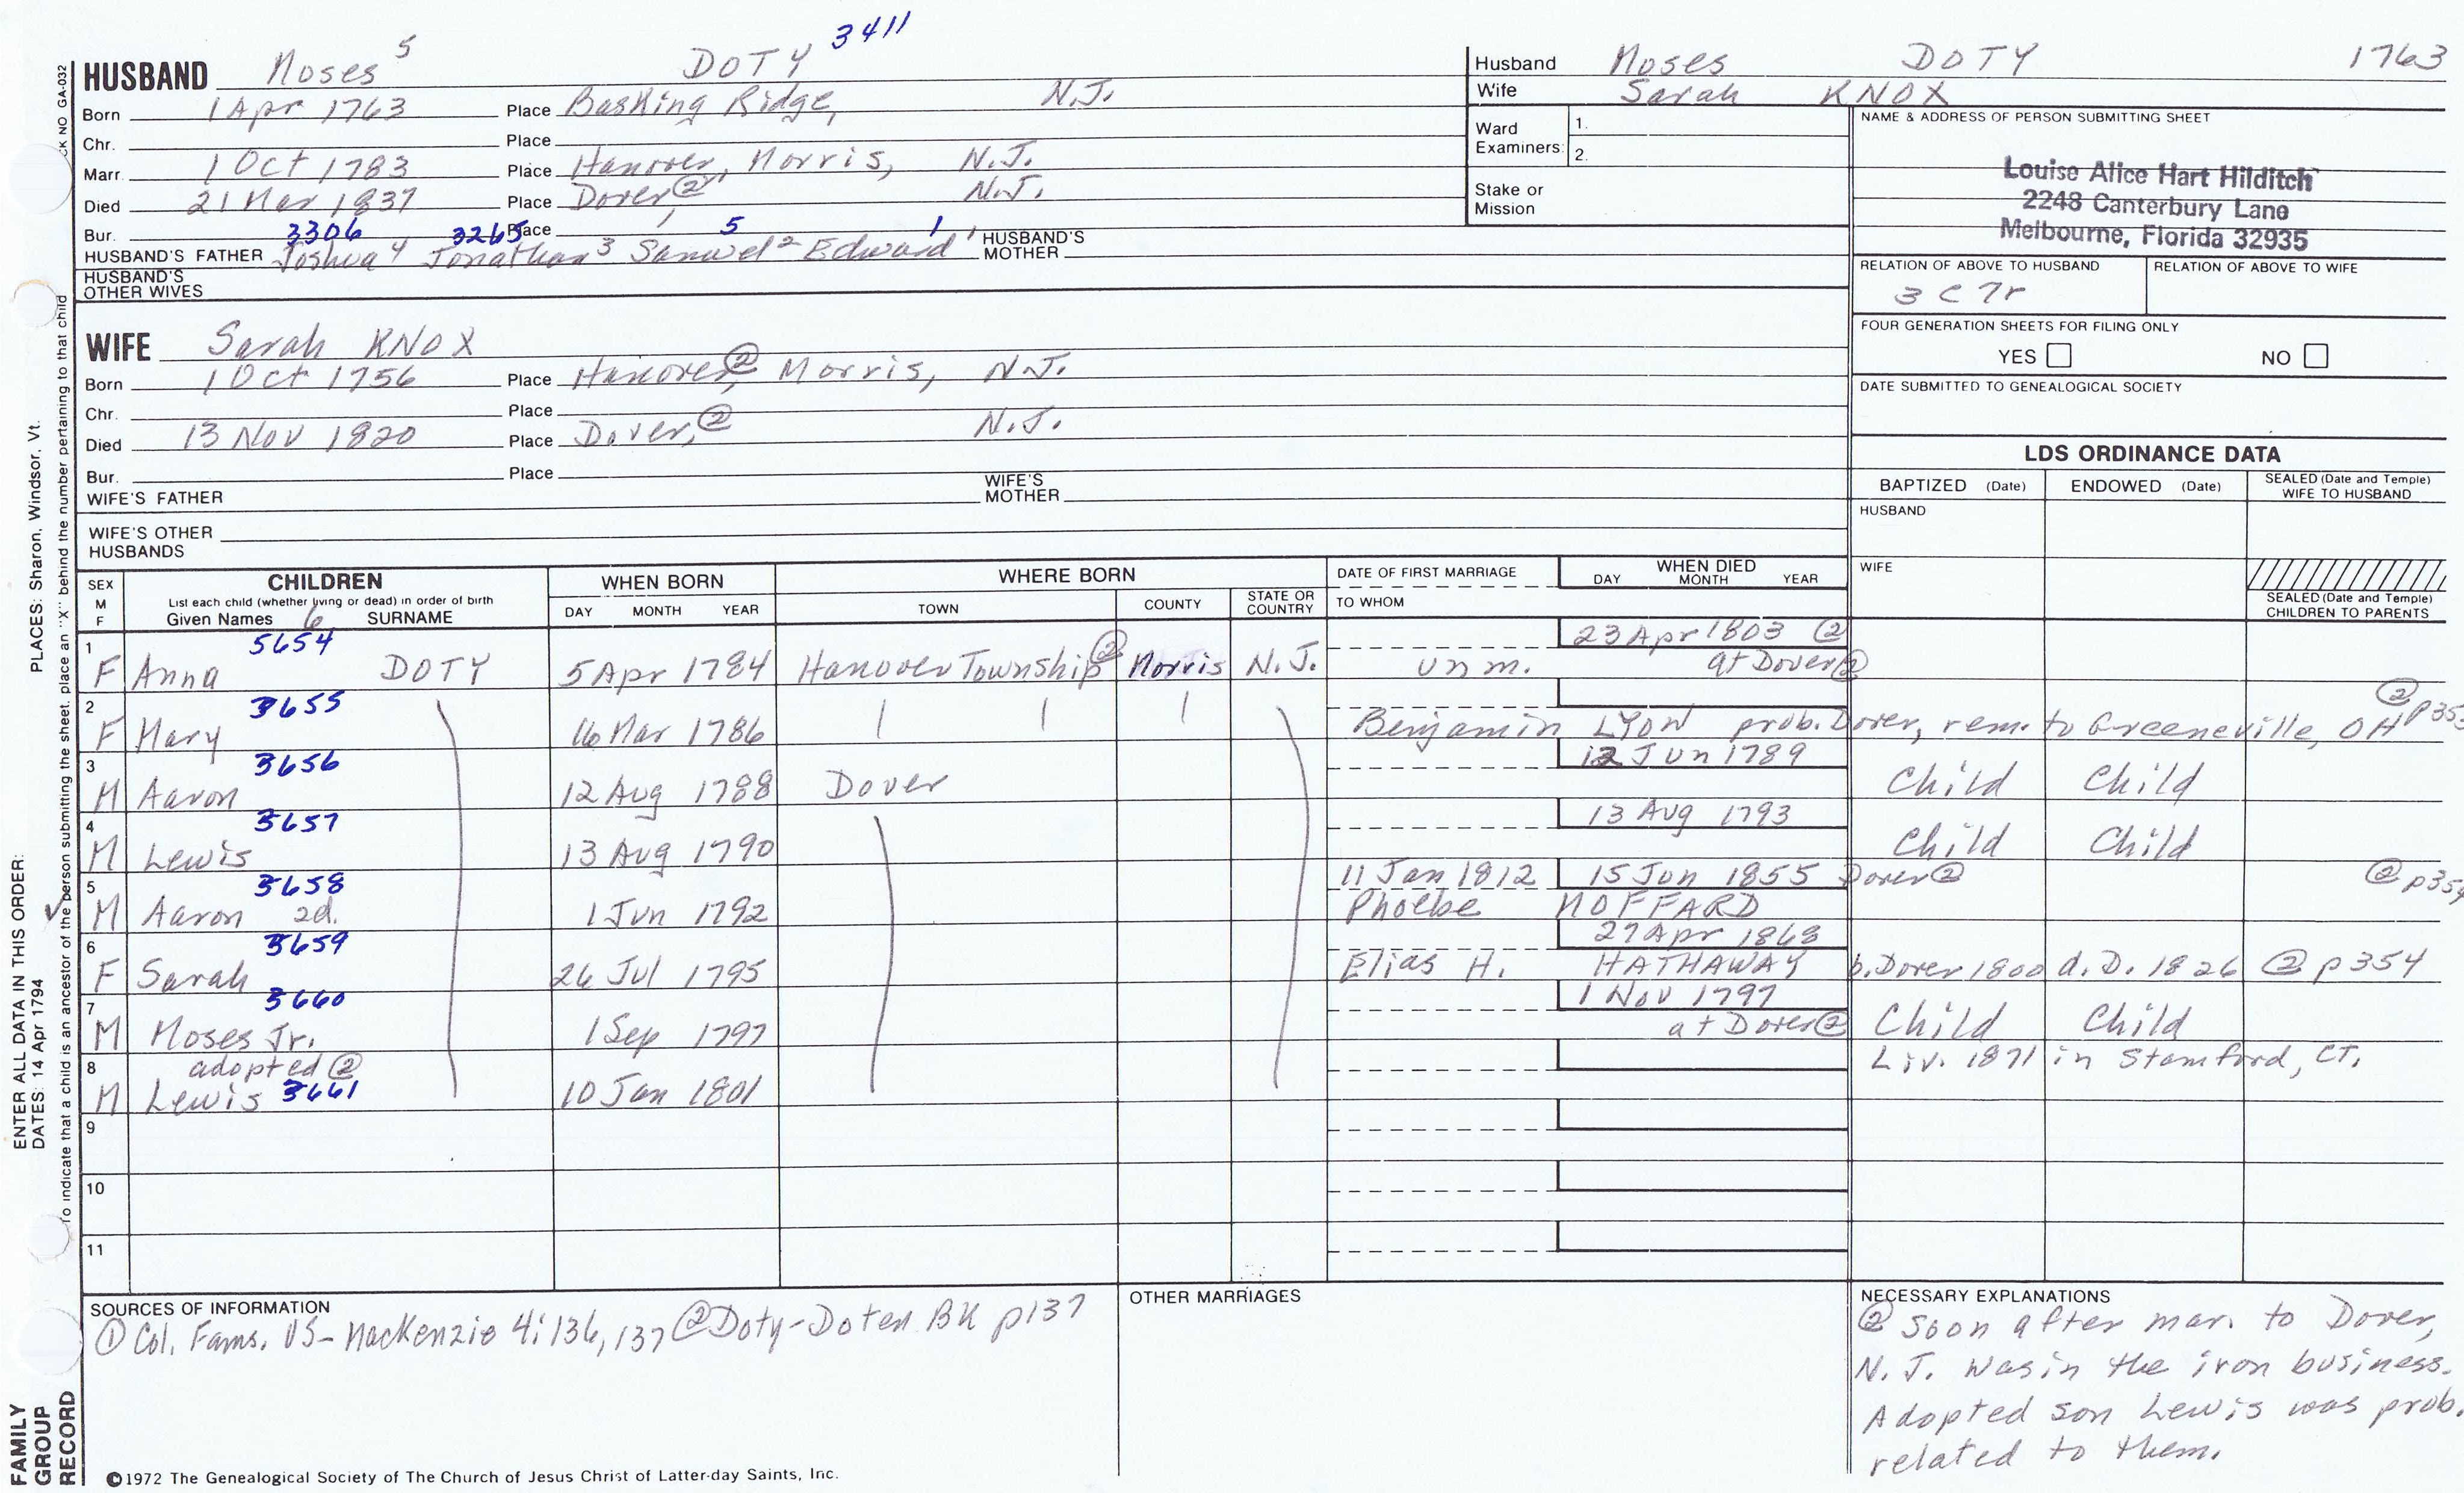 3411
HUSBAND Moses 5 DOTY
Born 1 Apr 1763 Place Basking Ridge, N.J.
Chr. Place
Marr. 1 Oct 1783 Place Hanover, Morris, N.J.
Died 21 Mar 1837 Place Dover, @ N.J.
Bur. Place
3306 3265 5 1
HUSBAND'S FATHER Joshua 4 Jonathan 3 Samuel 2 Edward 1 HUSBAND'S MOTHER
HUSBAND'S OTHER WIVES
WIFE Sarah KNOX
Born 1 Oct 1756 Place Hanover, ② Morris, N.J.
Chr. Place
Died 13 Nov 1820 Place Dover, ② N.J.
Bur. Place
WIFE'S FATHER WIFE'S MOTHER
WIFE'S OTHER HUSBANDS
Husband Moses DOTY 1763
Wife Sarah KNOX
Ward Examiners: 1.
2.
Stake or Mission
NAME & ADDRESS OF PERSON SUBMITTING SHEET
Louise Alice Hart Hilditch
2248 Canterbury Lane
Melbourne, Florida 32935
RELATION OF ABOVE TO HUSBAND RELATION OF ABOVE TO WIFE
3 C 7r
FOUR GENERATION SHEETS FOR FILING ONLY
YES NO
DATE SUBMITTED TO GENEALOGICAL SOCIETY
LDS ORDINANCE DATA
BAPTIZED (Date) ENDOWED (Date) SEALED (Date and Temple) WIFE TO HUSBAND
HUSBAND
WIFE
SEALED (Date and Temple) CHILDREN TO PARENTS
SEX M F
CHILDREN
List each child (whether living or dead) in order of birth
Given Names 6 SURNAME
WHEN BORN
DAY MONTH YEAR
WHERE BORN
TOWN COUNTY STATE OR COUNTRY
DATE OF FIRST MARRIAGE
TO WHOM
WHEN DIED
DAY MONTH YEAR
1 5654 23 Apr 1803 ②
F Anna DOTY 5 Apr 1784 Hanover Township ② Morris N.J. unm. at Dover ②
2 3655 ②
F Mary 16 Mar 1786 Benjamin LYON prob. Dover, rem. to Greeneville, OH p353
3 3656 12 Jun 1789
M Aaron 12 Aug 1788 Dover Child Child
4 3657 13 Aug 1793
M Lewis 13 Aug 1790 Child Child
5 3658 11 Jan 1812 15 Jun 1855 Dover ② ② p354
M Aaron 2d. 1 Jun 1792 Phoebe MOFFARD
6 3659 27 Apr 1868
F Sarah 26 Jul 1795 Elias H. HATHAWAY b. Dover 1800 d. D. 1826 ② p354
7 3660 1 Nov 1797
M Moses Jr. 1 Sep 1797 at Dover ② Child Child
8 adopted ② Liv. 1871 in Stamford, CT.
M Lewis 3661 10 Jan 1801
9
10
11
SOURCES OF INFORMATION
① Col. Fams. US- MacKenzie 4:136,137 ② Doty-Doten BK p137
OTHER MARRIAGES
NECESSARY EXPLANATIONS
② Soon after mar. to Dover,
N.J. Was in the iron business.
Adopted son Lewis was prob.
related to them.
©1972 The Genealogical Society of The Church of Jesus Christ of Latter-day Saints, Inc.
FAMILY GROUP RECORD
ENTER ALL DATA IN THIS ORDER:
DATES: 14 Apr 1794
PLACES: Sharon, Windsor, Vt.
To indicate that a child is an ancestor of the person submitting the sheet, place an "X" behind the number pertaining to that child
CK NO GA-032